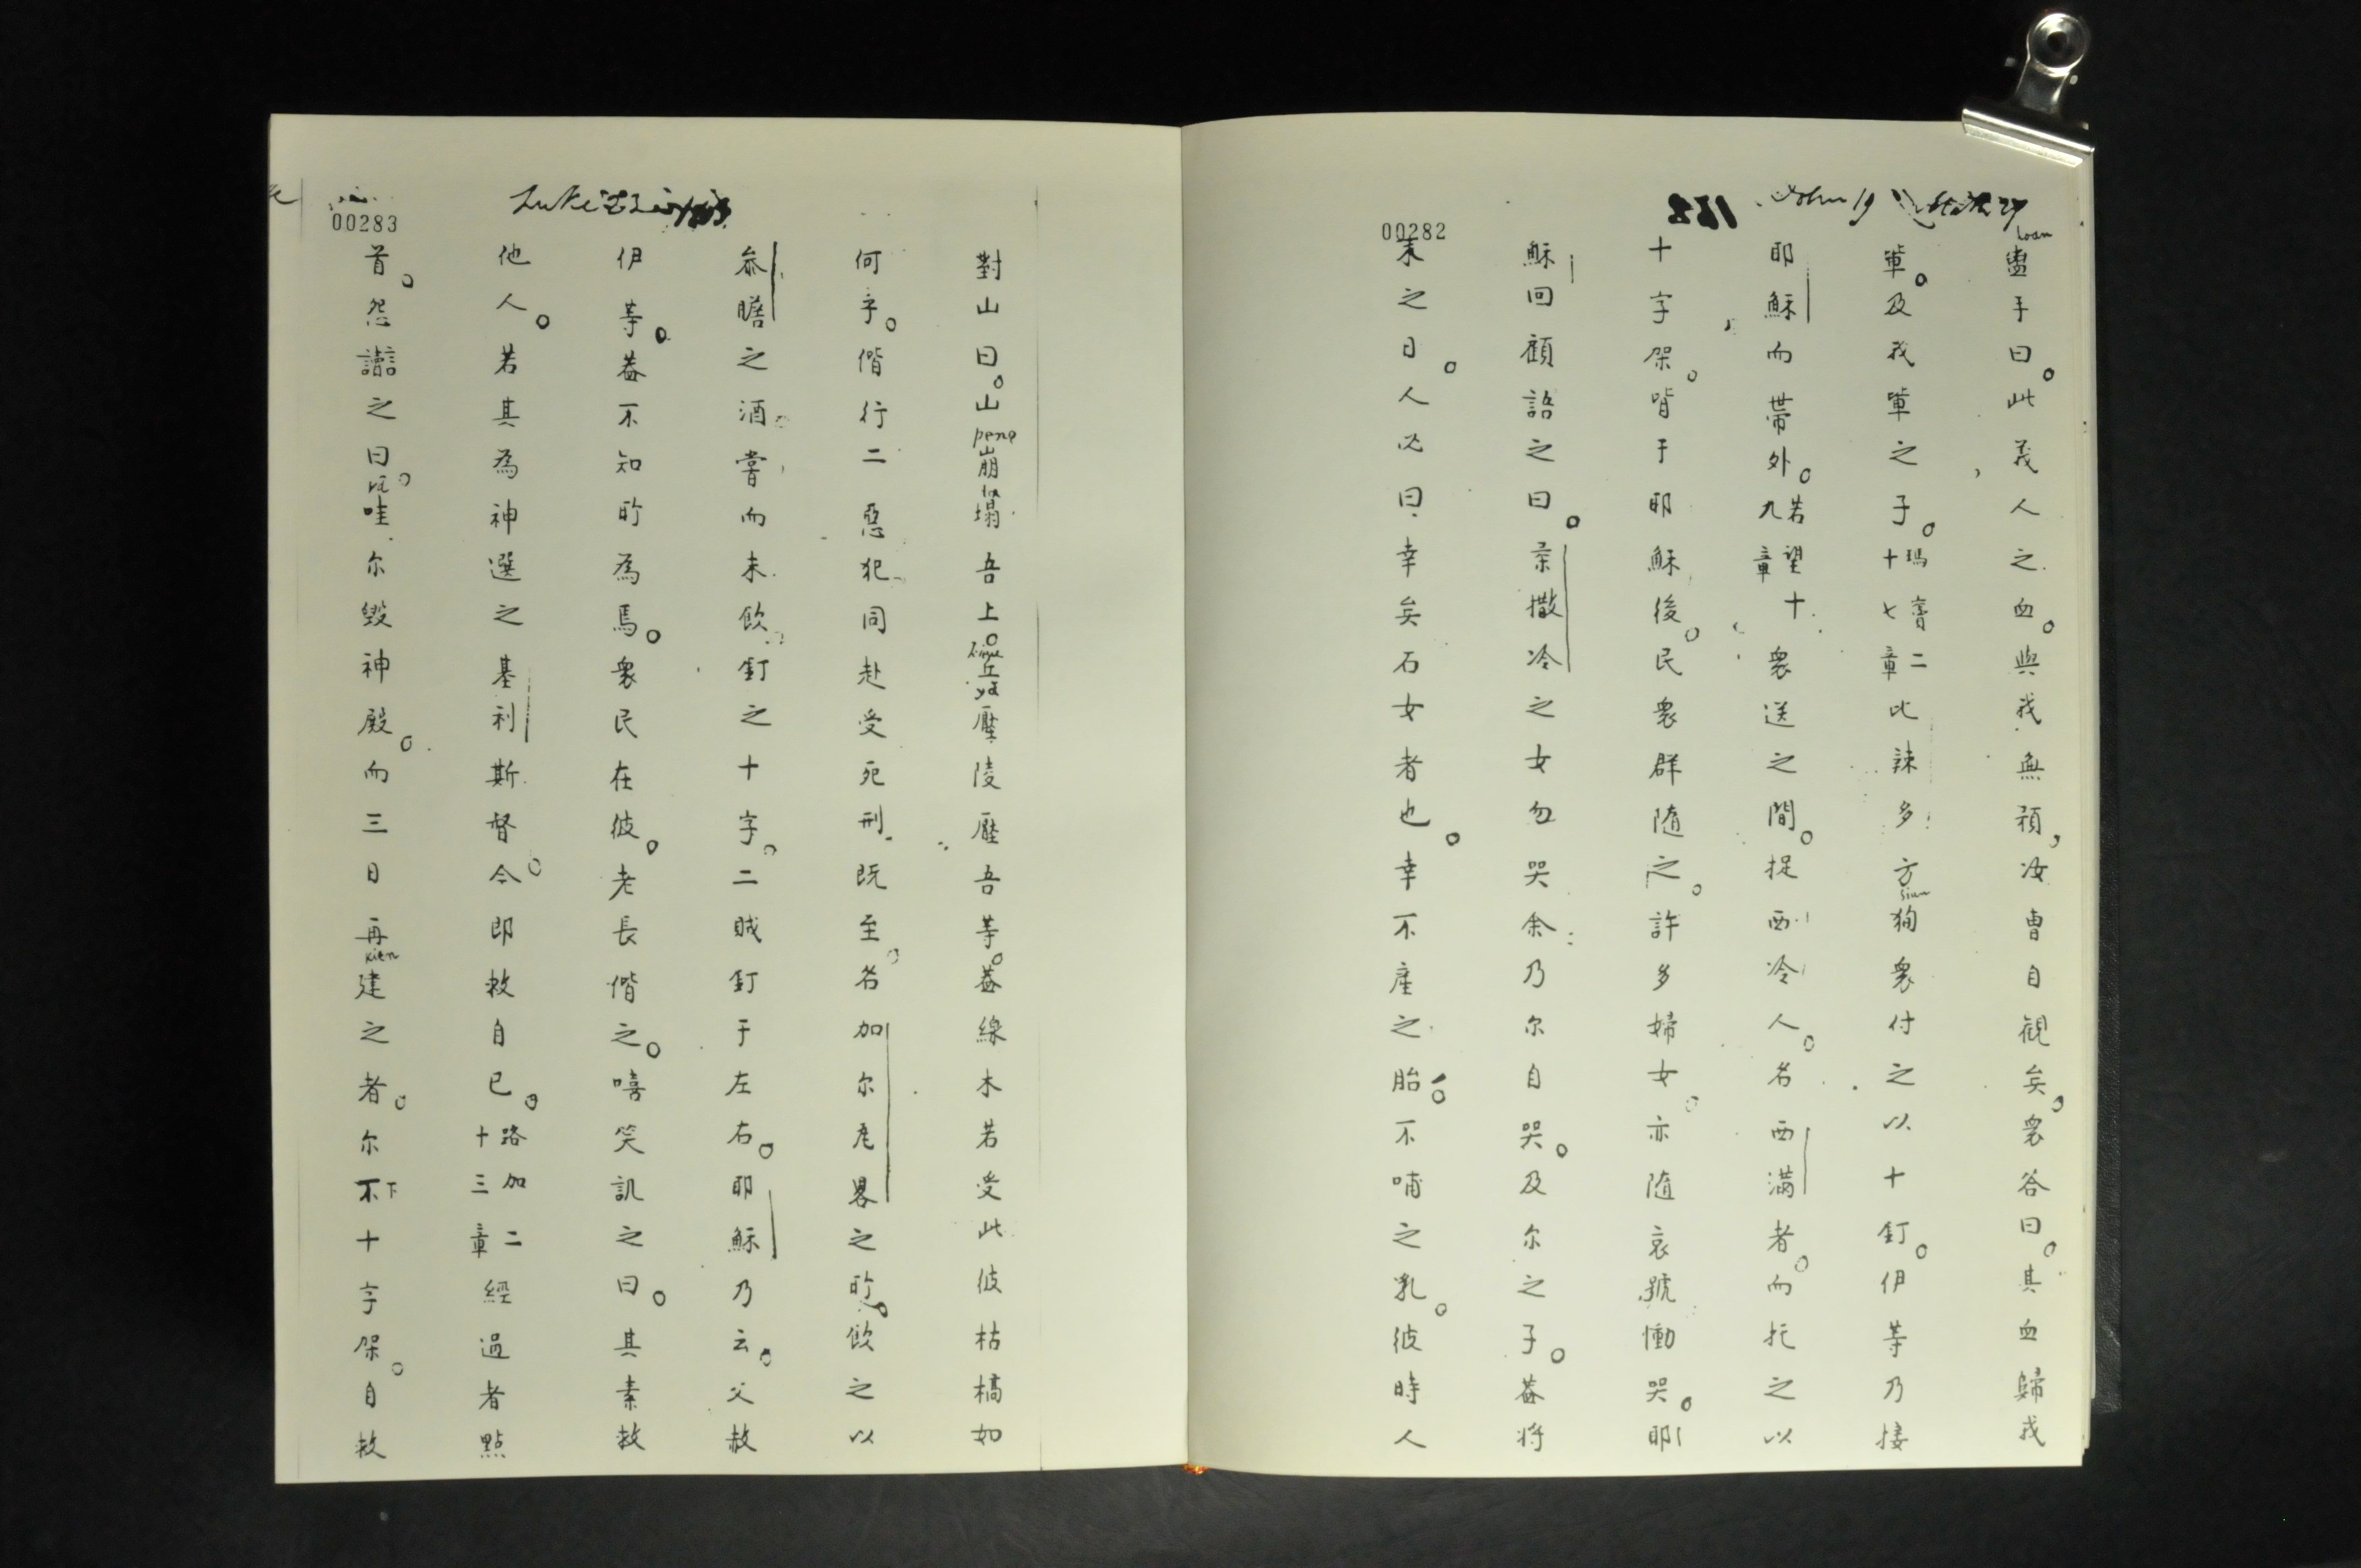 John 19
00282
盥手曰。此義人之血。與我無預，汝曹自観矣。衆答曰。其血歸我
軰。及我軰之子。瑪竇二十七章比辣多方狥衆付之以十釘。伊等乃接
耶穌而帯外。若望十九章衆送之間。捉西冷人。名西満者。而托之以
十字架。背于耶穌後。民衆群随之。許多婦女。亦随哀號慟哭。耶
穌回顧語之曰。柔撒冷之女勿哭余乃尔自哭。及尔之子。蓋将
来之日。人必曰幸矣石女者也。幸不産之胎。不哺之乳。彼時人
00283
對山曰。山崩塌吾上。丘壓陵壓吾等。蓋緑木若受此彼枯槁如
何乎。偕行二惡犯同赴受死刑既至。名加尔瓦畧之所。飲之以
叅膽之酒。嘗而未飲。釘之十字。二賊釘于左右。耶穌乃云。父赦
伊等。蓋不知所為焉。衆民在彼。老長偕之。嘻笑訕之曰。其素救
他人。若其為神選之基利斯督。今即救自已。路加二十三章經過者點
首。怨讟之曰。哇尔毀神殿。而三日再建之者。尔下十字架。自救